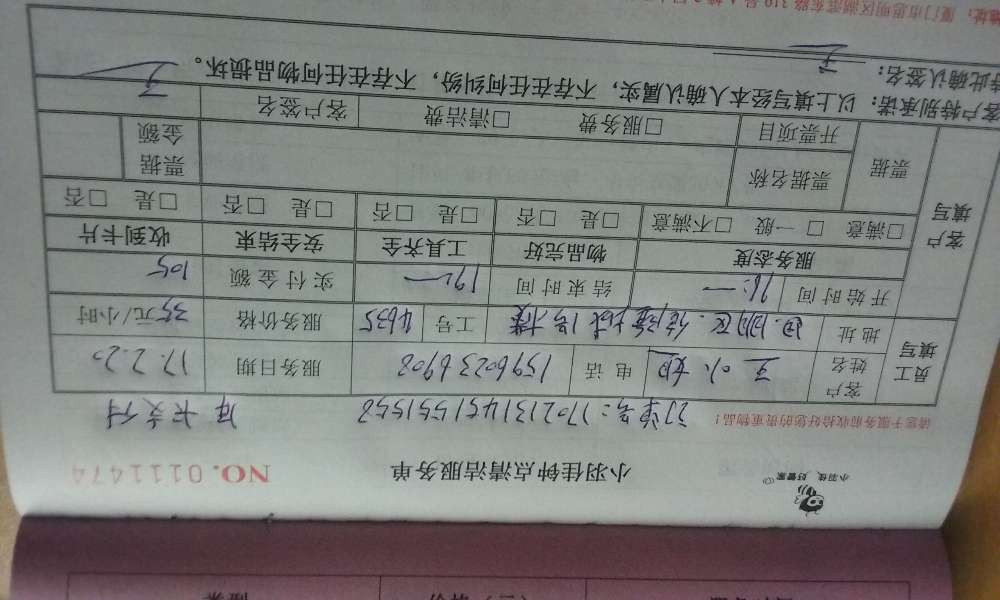 小羽佳 好管家
小羽佳钟点清洁服务单 NO.0111474
请您于服务前收拾好您的贵重物品! 订单号:1702131451551558 库卡支付
员工填写 客户姓名 王小姐 电话 15960236908 服务日期 17.2.20
地址 工号 4635 服务价格 35元/小时
开始时间 16:— 结束时间 19:— 实付金额 105
客户填写 服务态度 物品完好 工具齐全 安全结束 收到卡片
□满意 □一般 □不满意 □是 □否 □是 □否 □是 □否 □是 □否
票据 票据名称 票据金额
开票项目 □服务费 □清洁费 客户签名
客户特别承诺:以上填写经本人确认属实,不存在任何纠纷,不存在任何物品损坏。
特此确认签名: